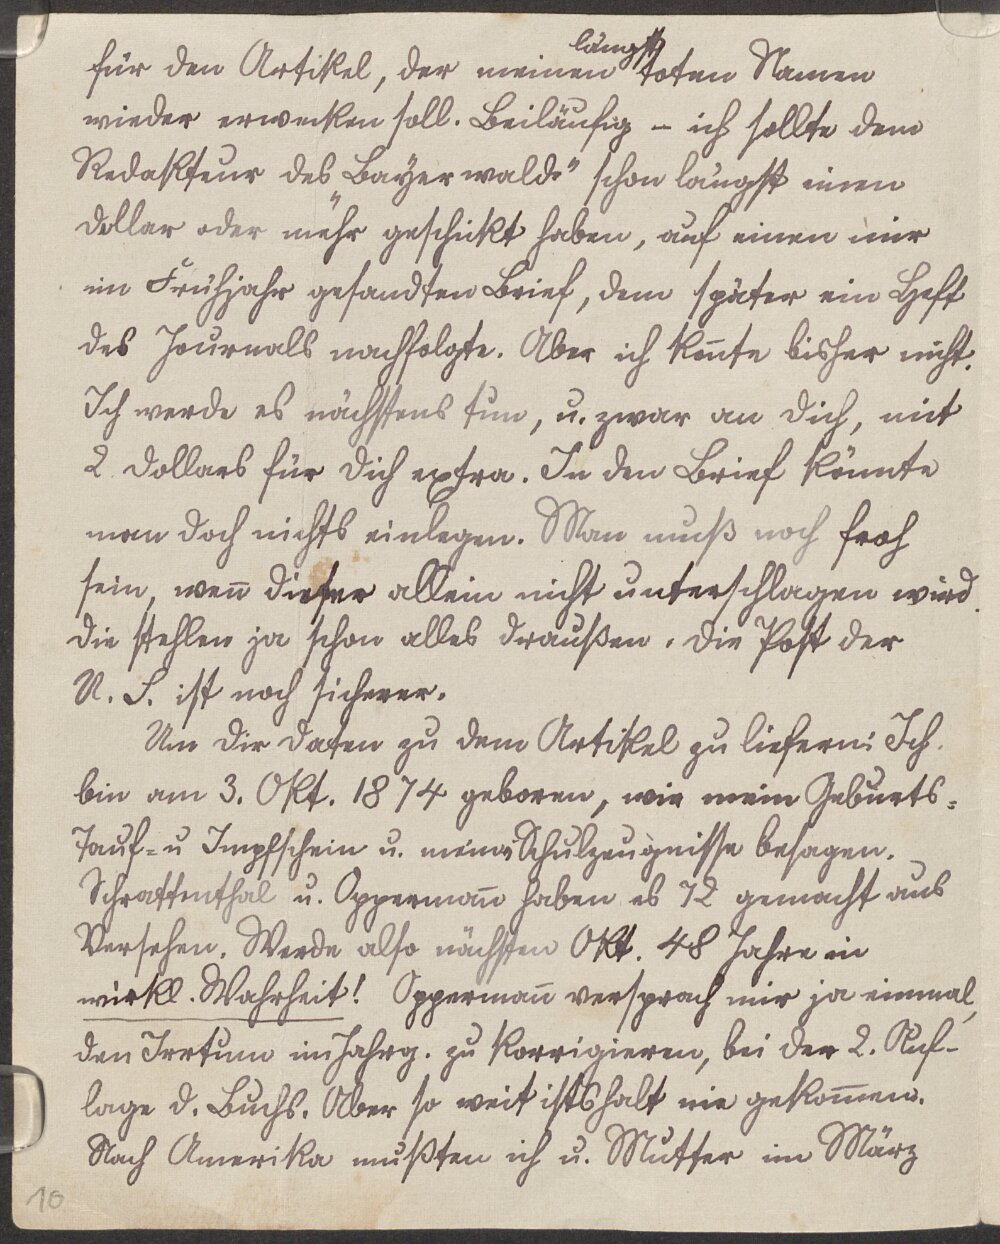 für den Artikel, der meinen längst toten Namen
wieder erwecken soll. Beiläufig – ich sollte dem
Redakteur des „Bayerwald“ schon längst einen
Dollar oder mehr geschickt haben, auf einen mir
im Frühjahr gesandten Brief, dem später ein Heft
des Journals nachfolgte. Aber ich kon̅te bisher nicht.
Ich werde es nächstens tun, u. zwar an Dich, mit
2 Dollars für Dich extra. In den Brief könnte
man doch nichts einlegen. Man muß noch froh
sein, wen̅ dieser allein nicht unterschlagen wird.
Die stehlen ja schon alles draußen. Die Post der
U. S. ist noch sicherer.
Um Dir Daten zu dem Artikel zu liefern: Ich
bin am 3. Okt. 1874 geboren, wie mein Geburts-
Tauf- u Impfschein u. meine Schulzeugnisse besagen.
Schrattenthal u. Opperman̅ haben es 72 gemacht aus
Versehen. Werde also nächsten Okt. 48 Jahre in
wirkl. Wahrheit! Opperman̅ versprach mir ja einmal,
den Irrtum im Jahrg. zu korrigieren, bei der 2. Auf-
lage d. Buchs. Aber so weit ists halt nie gekom̅en.
Nach Amerika mußten ich u. Mutter im März
10